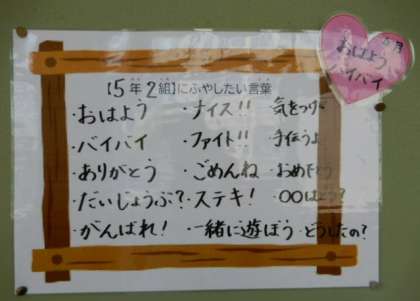 【5年2組】にふやしたい言葉
・おはよう ・ナイス!! ・気をつけて
・バイバイ ・ファイト!! ・手伝うよ
・ありがとう ・ごめんね ・おめでとう
・だいじょうぶ? ・ステキ! ・○○はどう?
・がんばれ! ・一緒に遊ぼう ・どうしたの?
5月
おはよう
バイバイ